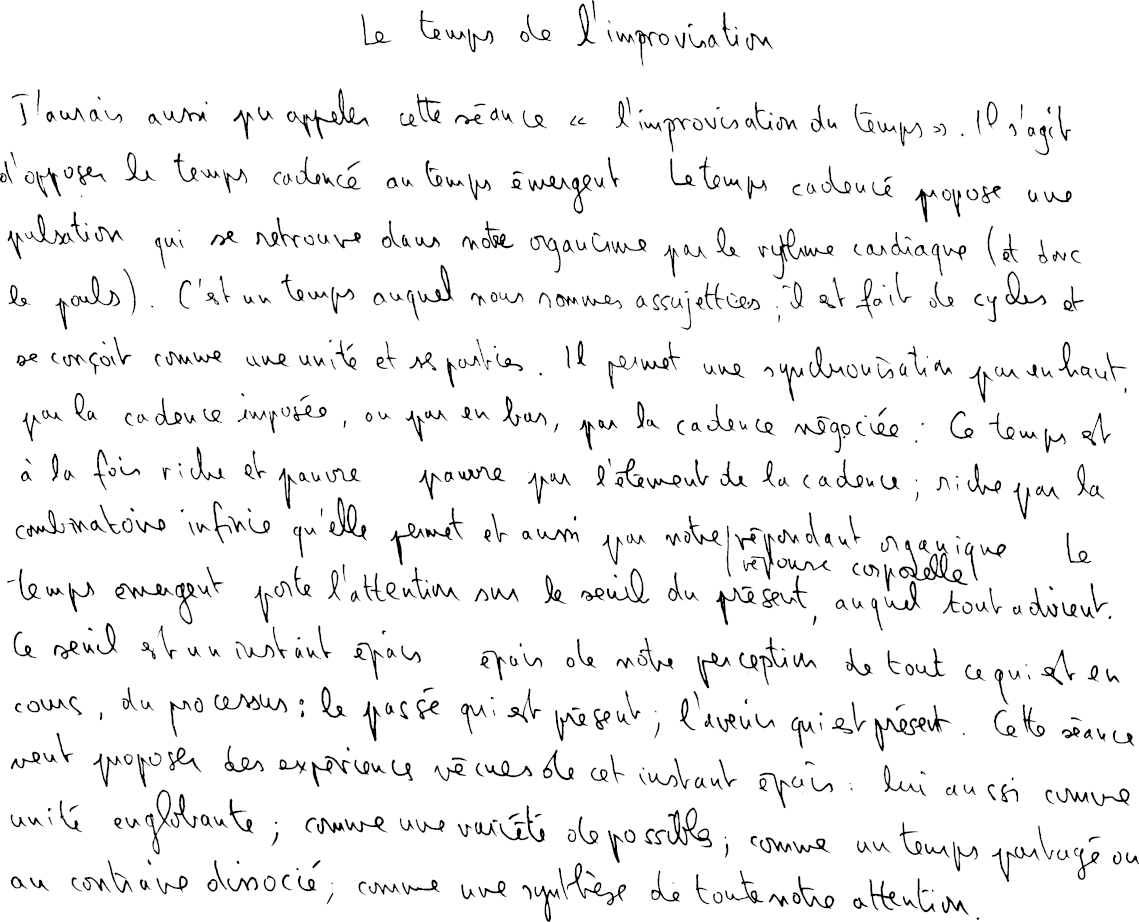 Le temps de l'improvisation
J'aurais aussi pu appeler cette séance « l'improvisation du temps ». Il s'agit
d'opposer le temps cadencé au temps émergent Le temps cadencé propose une
pulsation qui se retrouve dans notre organisme par le rythme cardiaque (et donc
le pouls). C'est un temps auquel nous sommes assujetties ; il est fait de cycles et
se conçoit comme une unité et ses parties. Il permet une synchronisation par en haut,
par la cadence imposée, ou par en bas, par la cadence négociée. Ce temps est
à la fois riche et pauvre pauvre par l'élément de la cadence ; riche par la
combinatoire infinie qu'elle permet et aussi par notre / répondant organique Le
réponse corporelle /
temps émergent porte l'attention sur le seuil du présent, auquel tout advient.
Ce seuil est un instant épais épais de notre perception de tout ce qui est en
cours, du processus : le passé qui est présent ; l'avenir qui est présent. Cette séance
veut proposer des expérience vécues de cet instant épais : lui aussi comme
unité englobante ; comme une variété de possibles ; comme un temps partagé ou
au contraire dissocié ; comme une synthèse de toute notre attention.